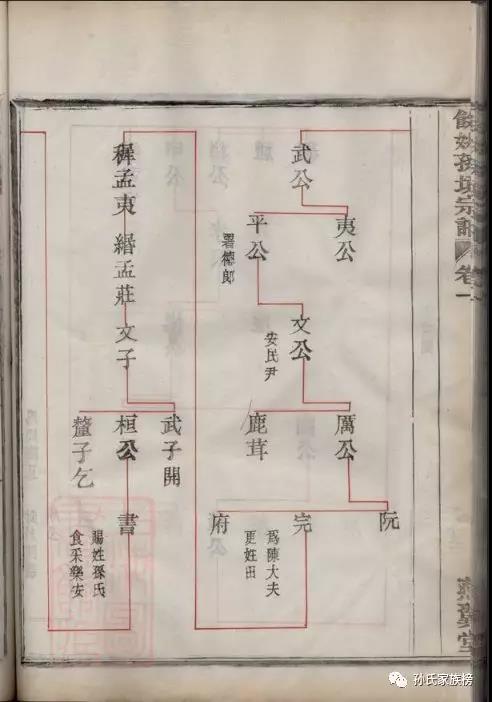 餘姚孫境宗譜 卷一
燕翼堂
武公
夷公
平公
署德郎
文公
安民尹
厲公
鹿茸
阮
完
爲陳大夫
更姓田
府
穉孟夷
緡孟莊
文子
武子開
桓公
釐子乞
書
賜姓孫氏
食采樂安
孙氏家族榜